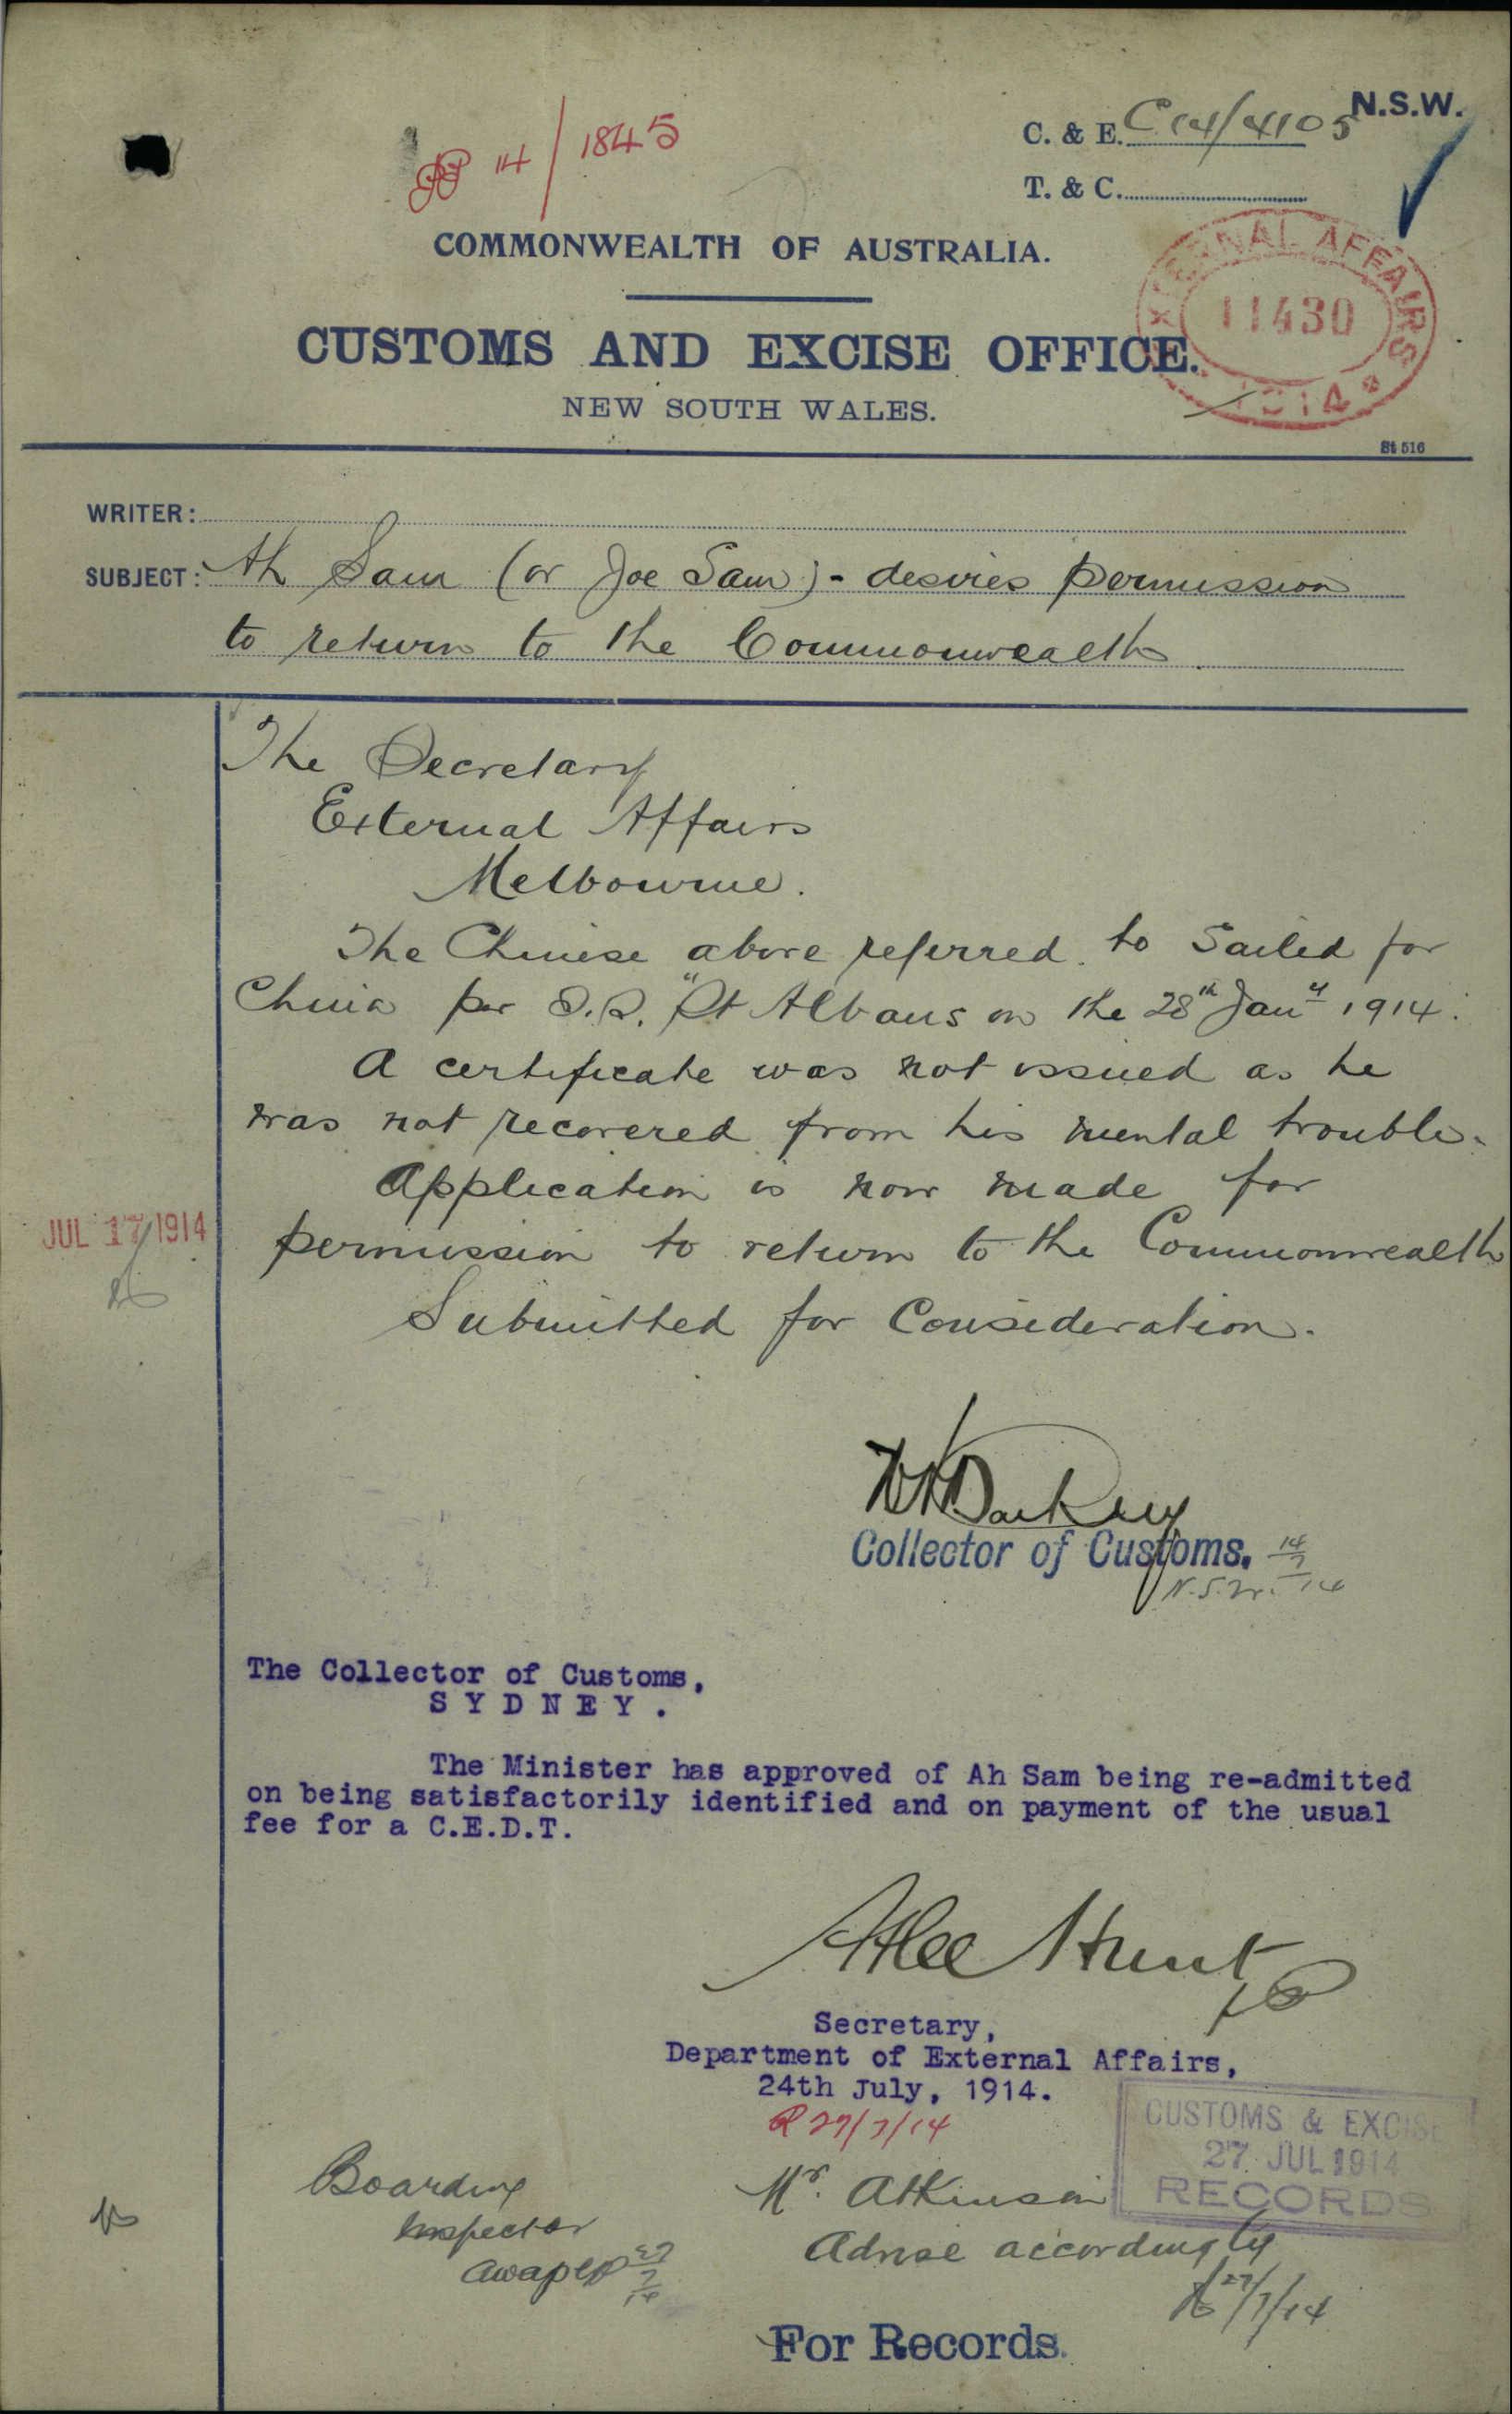 N.S.W.
14/1845
C. & E. C14/4105
T. & C.
COMMONWEALTH OF AUSTRALIA.
EXTERNAL AFFAIRS
11430
1914
CUSTOMS AND EXCISE OFFICE.
NEW SOUTH WALES.
St 516
WRITER:
SUBJECT: Ah Sam (or Joe Sam) - desires permission
to return to the Commonwealth
The Secretary
External Affairs
Melbourne.
The Chinese above referred to sailed for
China per S.S. "St Albans on the 28th Jany 1914.
A certificate was not issued as he
was not recovered from his mental trouble.
Application is now made for
JUL 17 1914
permission to return to the Commonwealth
Submitted for Consideration.
Collector of Customs. 14/7/14
N.S.W.
The Collector of Customs,
SYDNEY.
The Minister has approved of Ah Sam being re-admitted
on being satisfactorily identified and on payment of the usual
fee for a C.E.D.T.
Atlee Hunt
Secretary,
Department of External Affairs,
24th July, 1914.
R 27/7/14
CUSTOMS & EXCISE
27 JUL 1914
RECORDS
Boarding
Inspector
27/7/14
Mr. Atkinson
Advise accordingly
27/7/14
For Records.